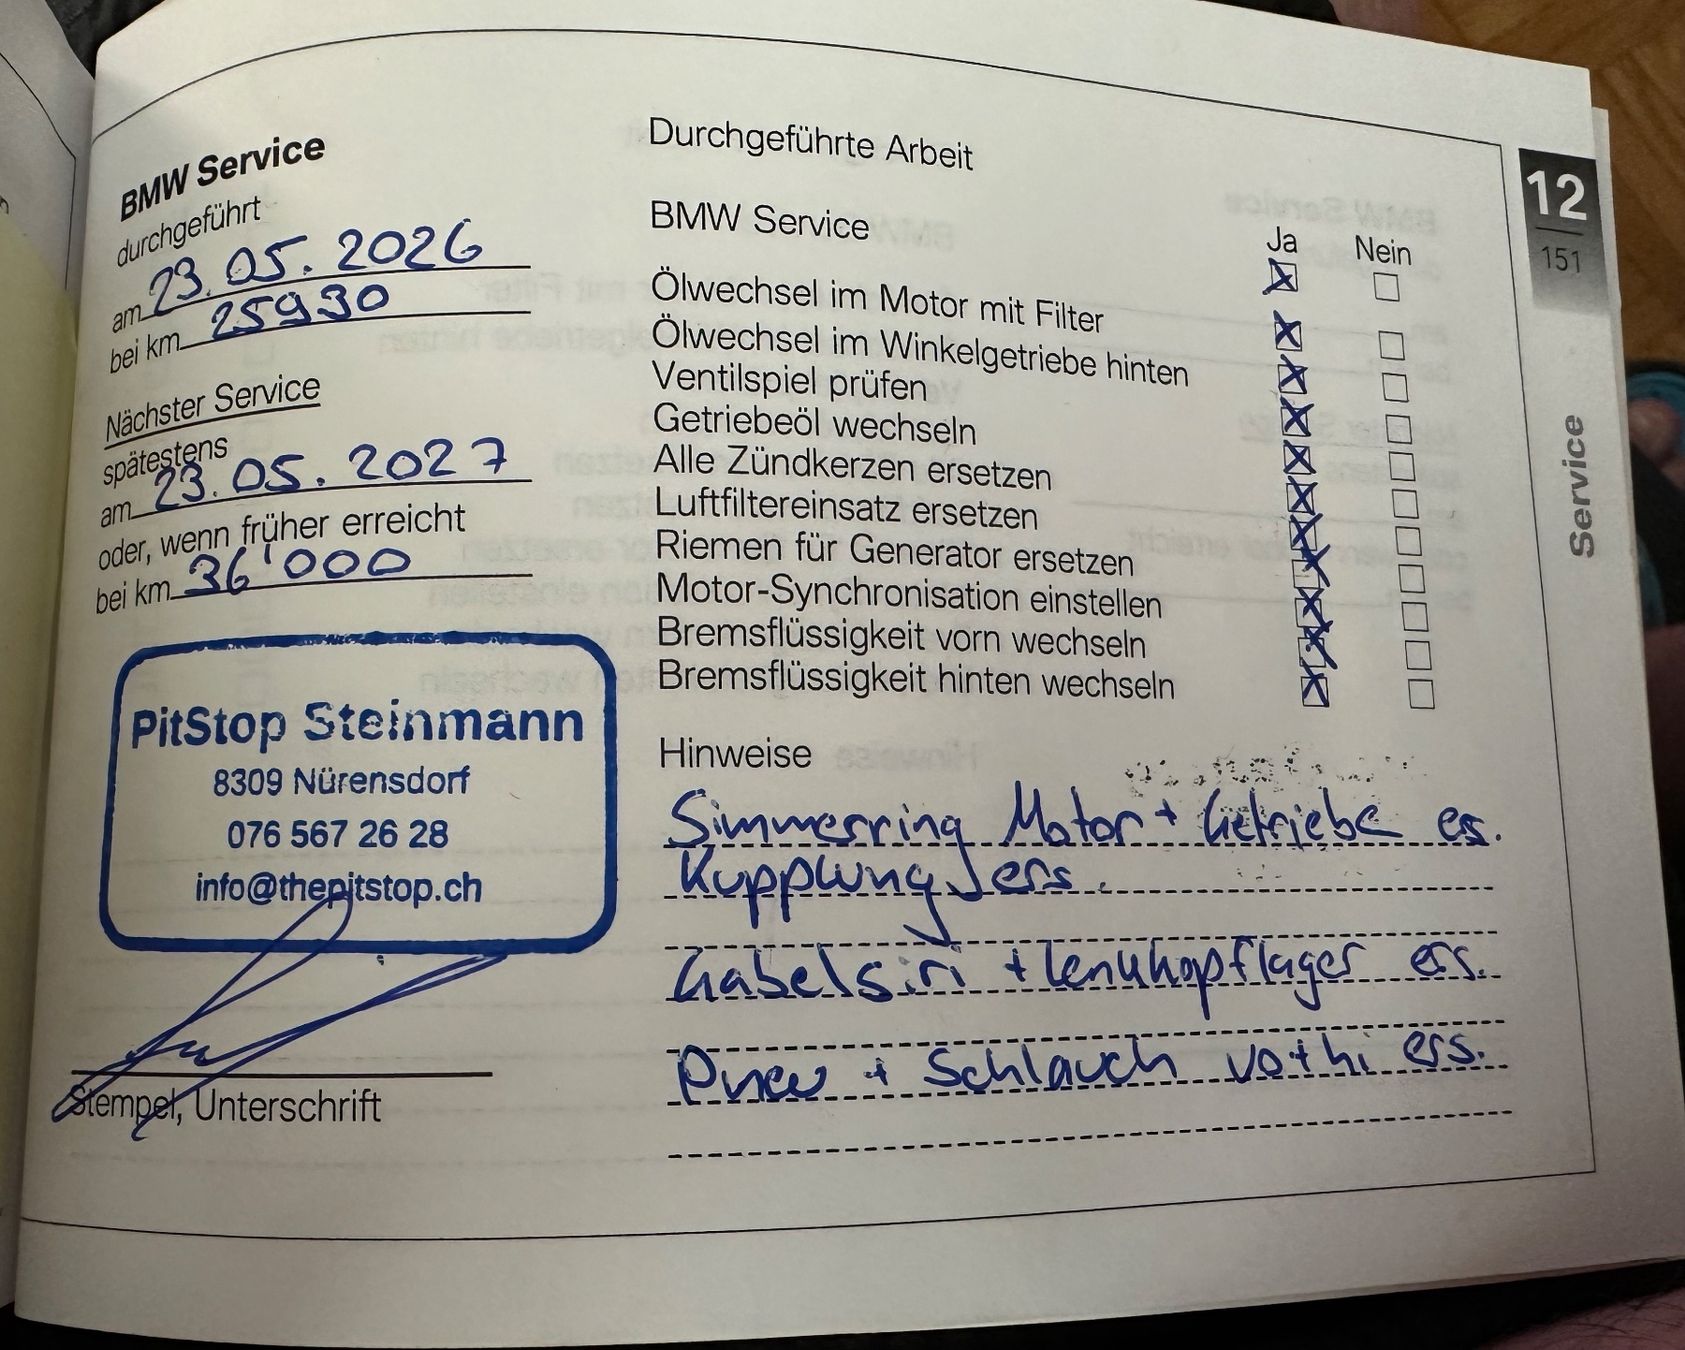 BMW Service
durchgeführt
am 23.05.2026
bei km 25930
Nächster Service
spätestens
am 23.05.2027
oder, wenn früher erreicht
bei km 36'000
PitStop Steinmann
8309 Nürensdorf
076 567 26 28
info@thepitstop.ch
Stempel, Unterschrift
Durchgeführte Arbeit
BMW Service
Ja Nein
Ölwechsel im Motor mit Filter
Ölwechsel im Winkelgetriebe hinten
Ventilspiel prüfen
Getriebeöl wechseln
Alle Zündkerzen ersetzen
Luftfiltereinsatz ersetzen
Riemen für Generator ersetzen
Motor-Synchronisation einstellen
Bremsflüssigkeit vorn wechseln
Bremsflüssigkeit hinten wechseln
Hinweise
Simmerring Motor + Getriebe es.
Kupplung ers.
Gabelsiri + Lenkkopflager ers.
Pneu + Schlauch vo+hi ers.
12
151
Service